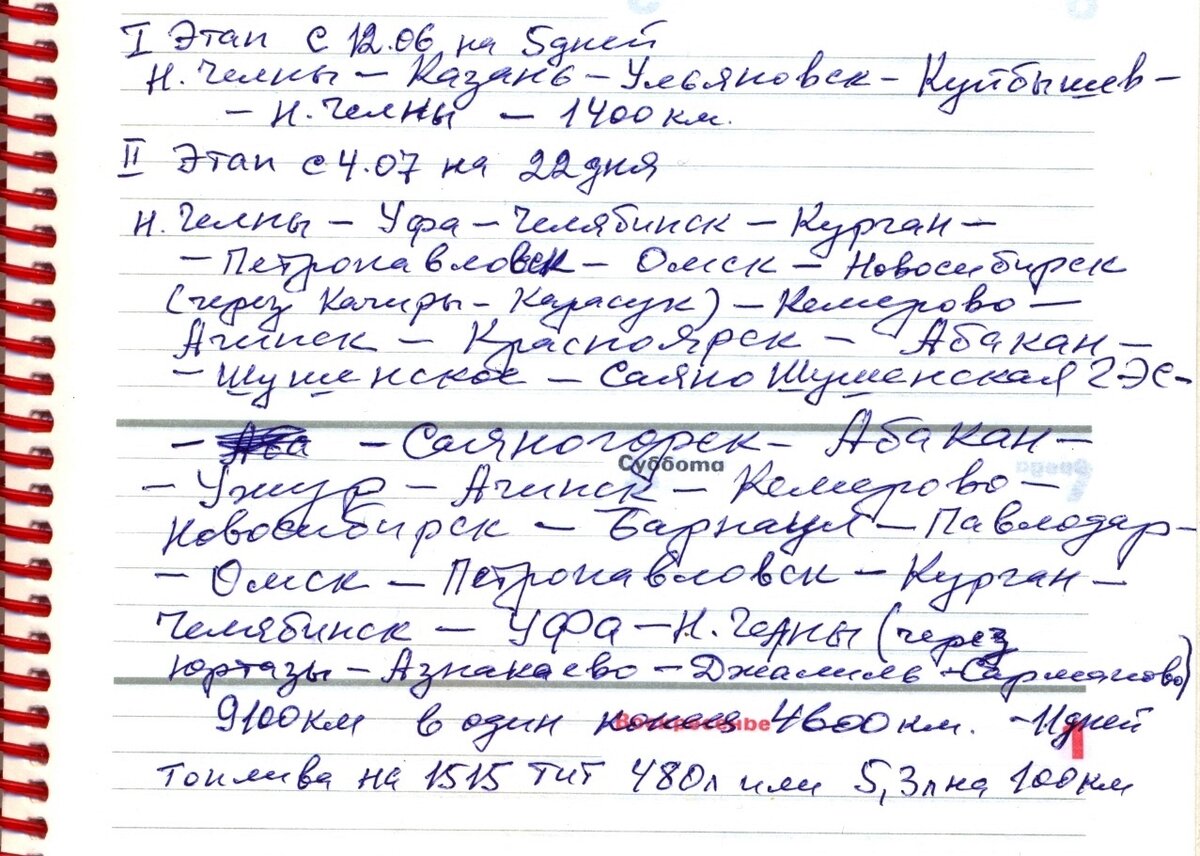 I Этап с 12.06 на 5 дней
Н. Челны – Казань – Ульяновск – Куйбышев –
– Н. Челны – 1400 км.
II Этап с 4.07 на 22 дня
Н. Челны – Уфа – Челябинск – Курган –
– Петропавловск – Омск – Новосибирск
(через Качиры – Карасук) – Кемерово –
Ачинск – Красноярск – Абакан –
– Шушенское – Саяно Шушенская ГЭС –
– – Саяногорск – Абакан –
Суббота
– Ужур – Ачинск – Кемерово –
Новосибирск – Барнаул – Павлодар –
– Омск – Петропавловск – Курган –
Челябинск – Уфа – Н. Челны (через
Ютазы – Азнакаево – Джалиль – Сарманово)
9100 км в один конец 4600 км. – 11 дней
Воскресенье
1
Топлива на 1515 тнт 480 л или 5,3 л на 100 км